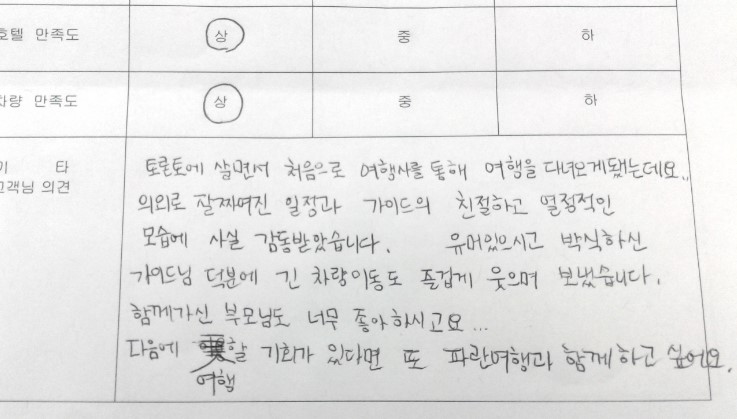 호텔 만족도 상 중 하
차량 만족도 상 중 하
기 타
고객님 의견
토론토에 살면서 처음으로 여행사를 통해 여행을 다녀오게됐는데요..
의외로 잘짜여진 일정과 가이드의 친절하고 열정적인
모습에 사실 감동받았습니다. 유머있으시고 박식하신
가이드님 덕분에 긴 차량이동도 즐겁게 웃으며 보냈습니다.
함께가신 부모님도 너무 좋아하시고요...
다음에 할 기회가 있다면 또 파란여행과 함께하고 싶어요.
여행